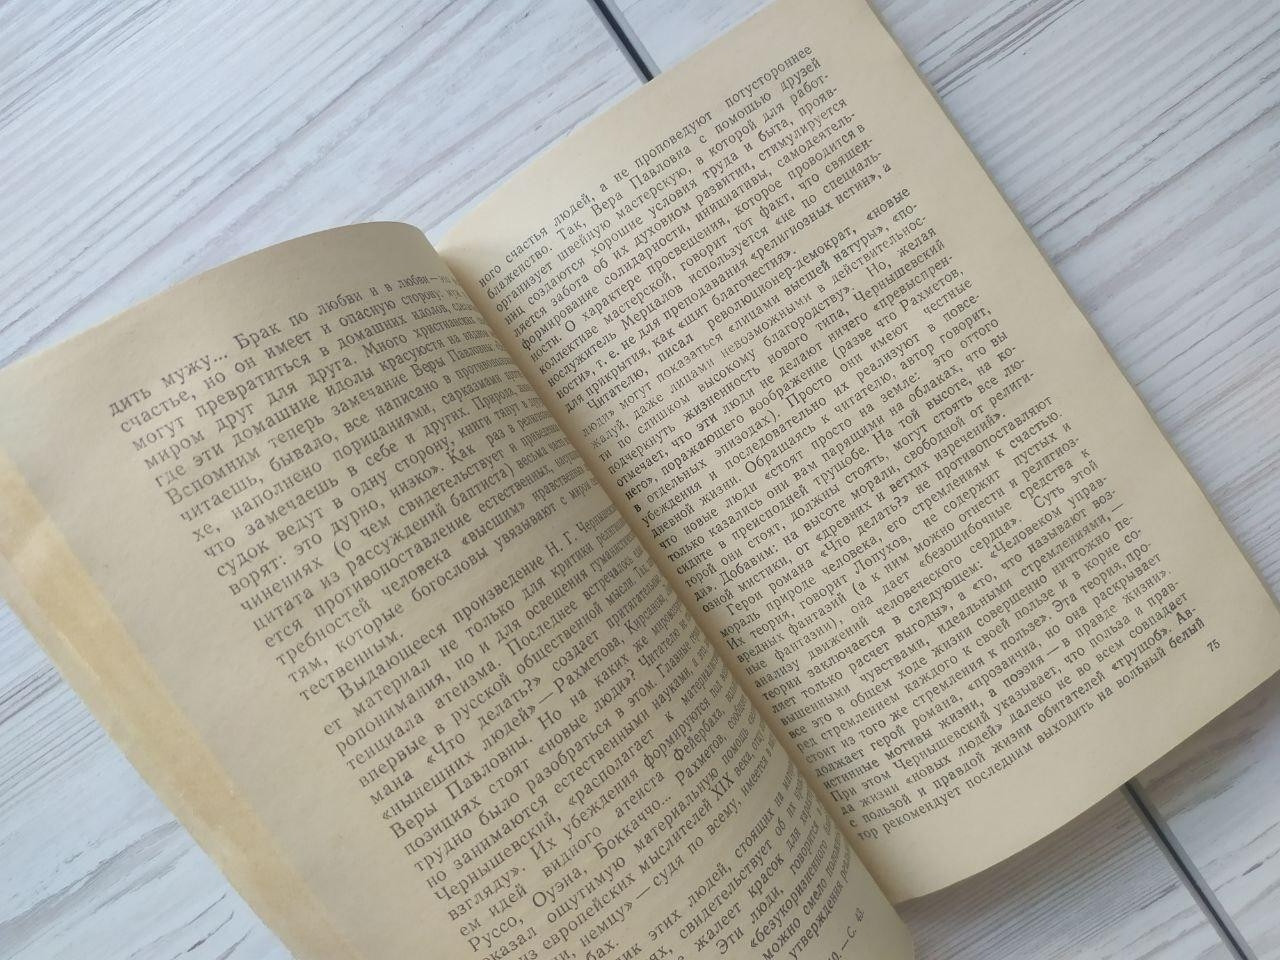 дить мужу... Брак по любви и в любви — это
счастье, но он имеет и опасную сторону:
могут превратиться в домашних идолов,
миром друг для друга. Много христианских
где эти домашние идолы красуются на видном
Вспомним теперь замечание Веры Павловны:
читаешь, бывало, все написано в противоположном
хе, наполнено порицаниями, сарказмами
что замечаешь в себе и других. Природа,
судок ведут в одну сторону, книги тянут в
ворят: это дурно, низко». Как раз в религиозных
чинениях (о чем свидетельствует и приведенная
цитата из рассуждений баптиста) весьма часто
ется противопоставление естественных, насущных
требностей человека «высшим» нравственным
тям, которые богословы увязывают с миром
тественным.
Выдающееся произведение Н. Г. Чернышевского
ет материал не только для критики религиозного
ропонимания, но и для освещения гуманистического
тенциала атеизма. Последнее встречалось
впервые в русской общественной мысли.
мана «Что делать?» создает притягательные
«нынешних людей» — Рахметова, Кирсанова,
Веры Павловны. Но на каких же мировоззренческих
позициях стоят «новые люди»? Читателю
трудно было разобраться в этом. Главные
но занимаются естественными науками, а
Чернышевский, «располагает к материалистическому
взгляду». Их убеждения формируются под
ем идей видного атеиста Фейербаха,
Руссо, Оуэна, Боккаччо... Рахметов,
оказал ощутимую материальную помощь
из европейских мыслителей XIX века,
немцу» — судя по всему, имеется в
бах.
этих людей, стоящих на
свидетельствует об их
жалеет красок для
Эти люди, говорится
«безукоризненного
можно смело
утверждения
— С. 43.
ного счастья людей, а не проповедуют потустороннее
блаженство. Так, Вера Павловна с помощью друзей
организует швейную мастерскую, в которой для работ-
ниц создаются хорошие условия труда и быта, прояв-
ляется забота об их духовном развитии, стимулируется
формирование солидарности, инициативы, самодеятель-
ности. О характере просвещения, которое проводится в
коллективе мастерской, говорит тот факт, что священ-
нослужитель Мерцалов используется «не по специаль-
ности», т. е. не для преподавания «религиозных истин», а
для прикрытия, как «щит благочестия».
Читателю, писал революционер-демократ, «новые
люди» могут показаться «лицами высшей натуры», «по-
жалуй, даже лицами невозможными в действительнос-
ти по слишком высокому благородству». Но, желая
подчеркнуть жизненность нового типа, Чернышевский
отмечает, что эти люди не делают ничего «превыспрен-
него», поражающего воображение (разве что Рахметов,
в отдельных эпизодах). Просто они имеют честные
убеждения и последовательно их реализуют в повсе-
дневной жизни. Обращаясь к читателю, автор говорит,
что новые люди «стоят просто на земле: это оттого
только казались они вам парящими на облаках, что вы
сидите в преисподней трущобе. На той высоте, на ко-
торой они стоят, должны стоять, могут стоять все лю-
ди». Добавим: на высоте морали, свободной от религи-
озной мистики, от «древних и ветхих изречений».
Герои романа «Что делать?» не противопоставляют
мораль природе человека, его стремлениям к счастью.
Их теория, говорит Лопухов, «не содержит пустых и
вредных фантазий (а к ним можно отнести и религиоз-
ные фантазии), она дает «безошибочные средства к
анализу движений человеческого сердца». Суть этой
теории заключается в следующем: «Человеком управ-
ляет только расчет выгоды», а «то, что называют воз-
вышенными чувствами, идеальными стремлениями, —
все это в общем ходе жизни совершенно ничтожно пе-
ред стремлением каждого к своей пользе и в корне со-
стоит из того же стремления к пользе». Эта теория, про-
должает герой романа, «прозаична, но она раскрывает
истинные мотивы жизни, а поэзия — в правде жизни».
При этом Чернышевский указывает, что польза и прав-
да жизни «новых людей» далеко не во всем совпадает
с пользой и правдой жизни обитателей «трущоб». Ав-
тор рекомендует последним выходить на вольный белый
75